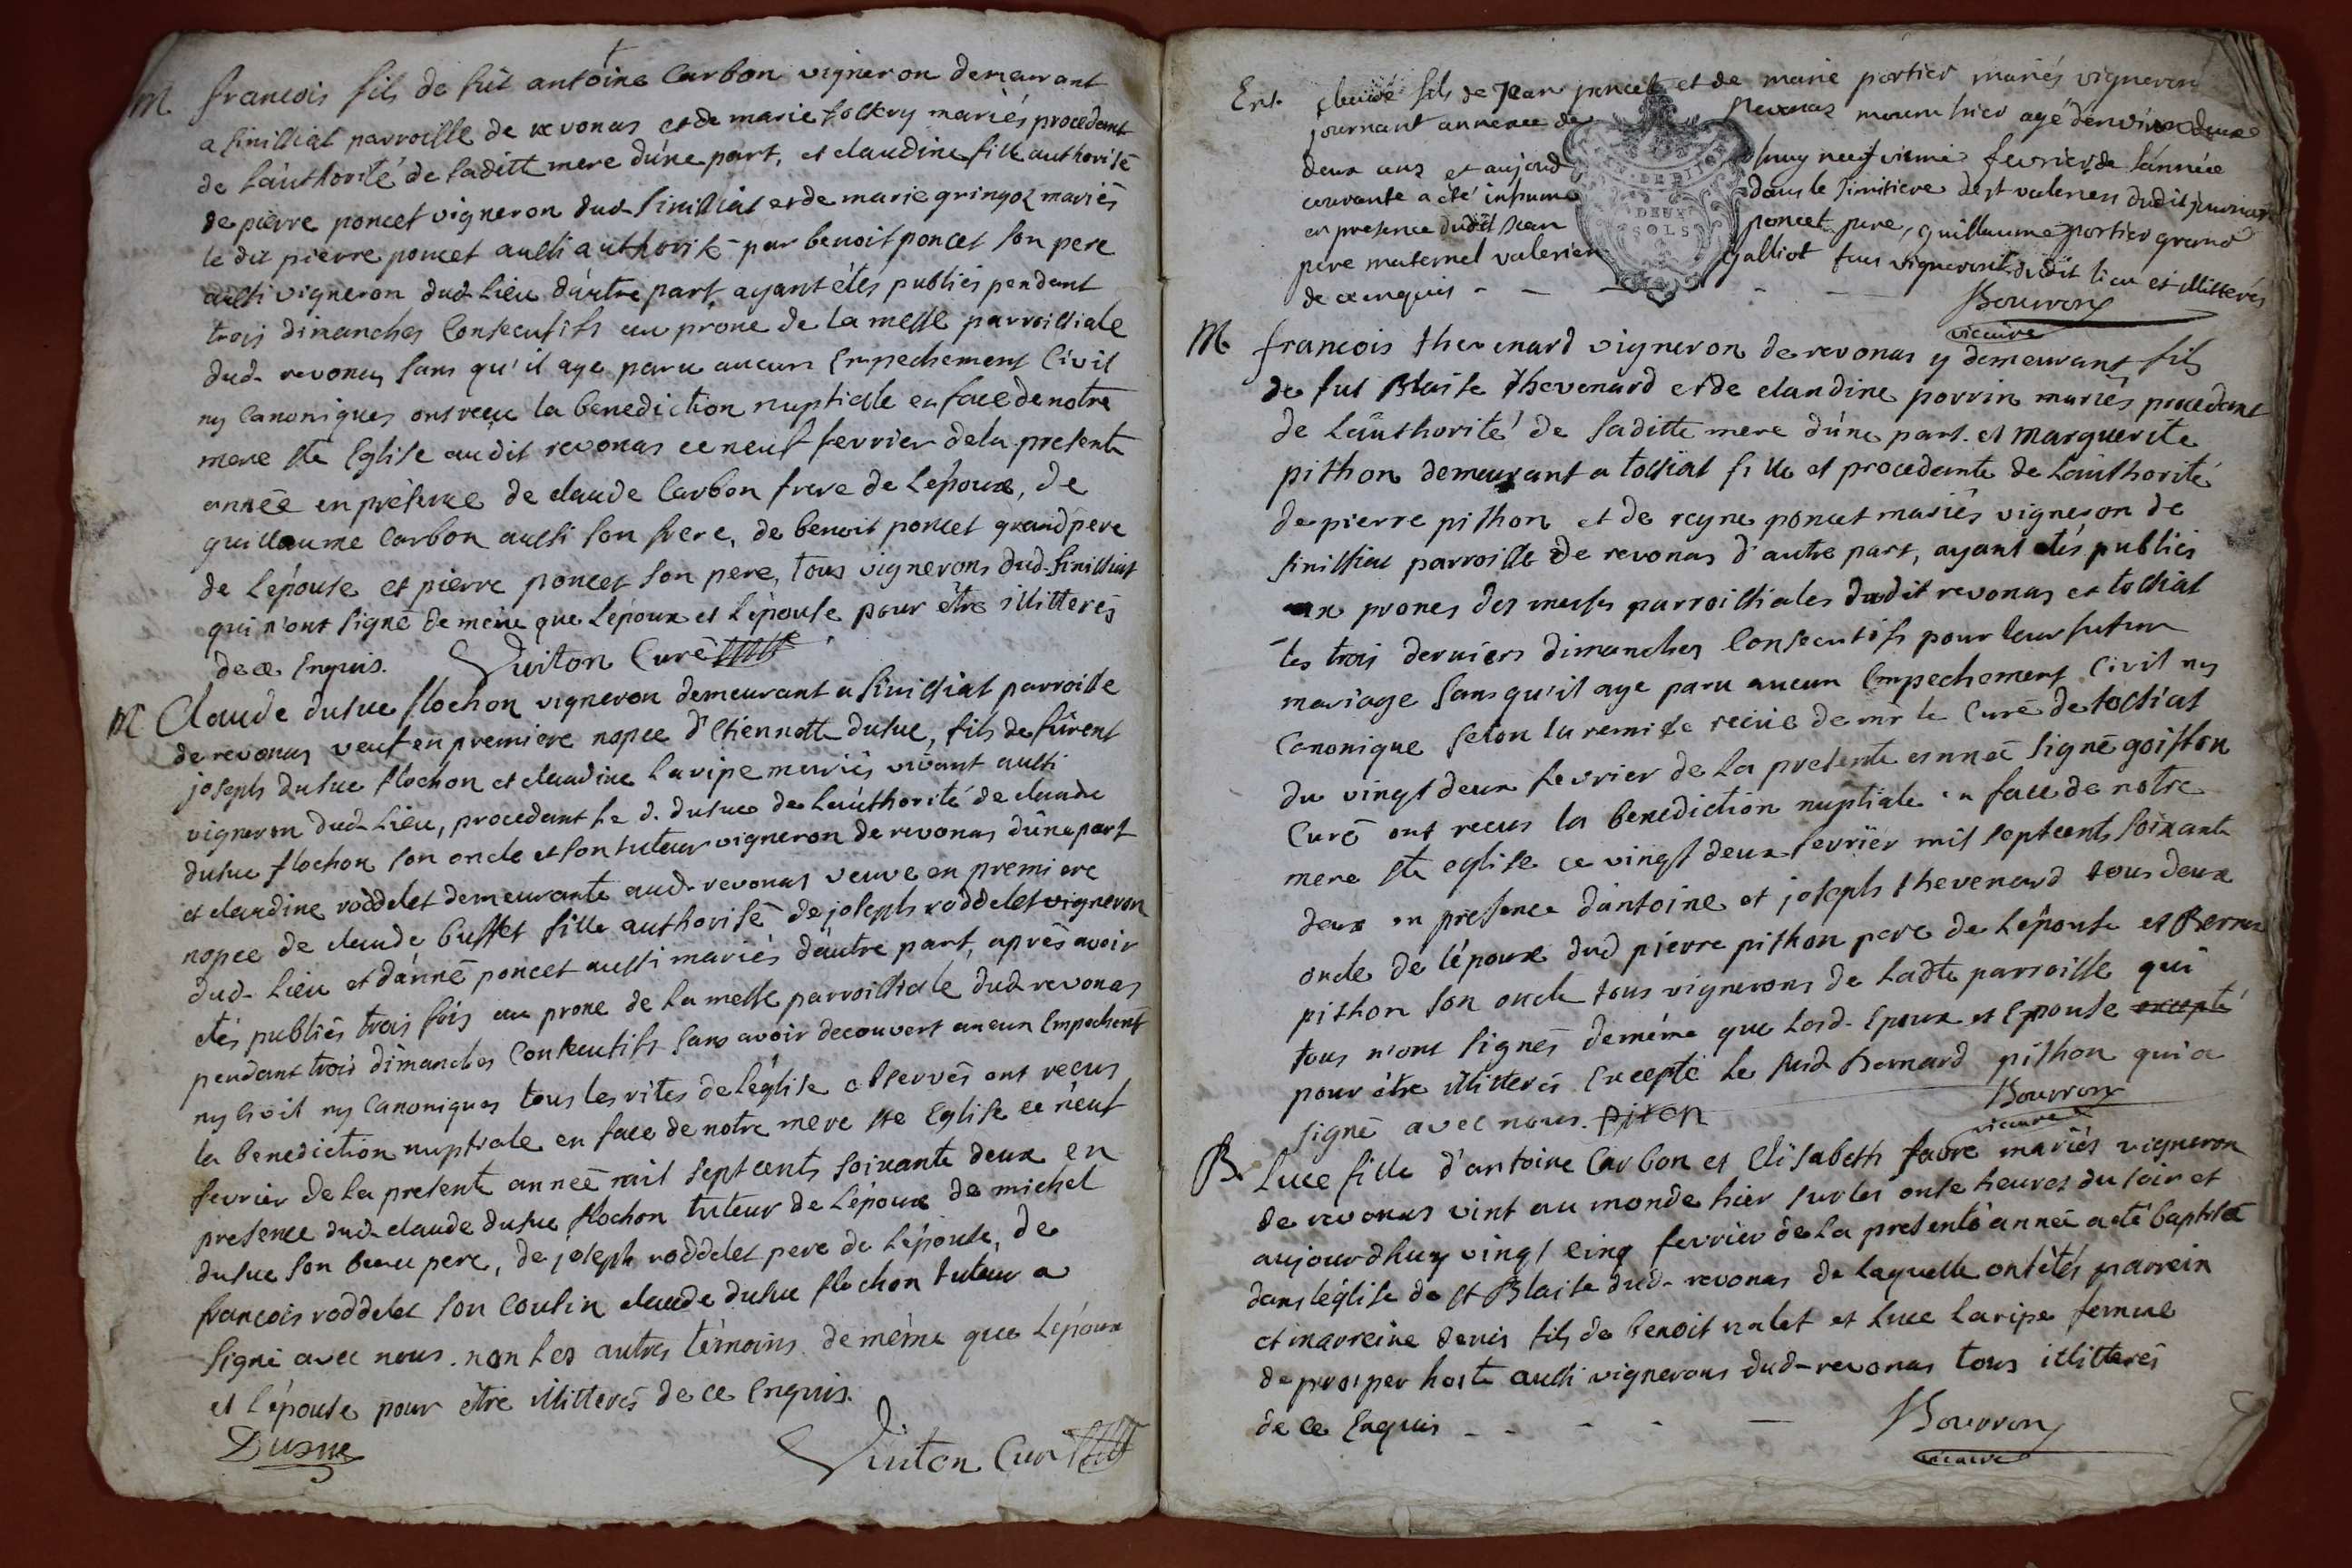 M francois fils de fut antoine Carbon vigneron demeurant
a sinissiat parroisse de revonas et de marie mariés procedant
de l'authorité de saditte mere d'une part, et claudine fille authorisé
de pierre poncet vigneron dud sinissiat et de marie gringoz mariés
le dit pierre poncet aussi authorisé par benoit poncet son pere
aussi vigneron dud lieu d'autre part, ayant étés publiés pendant
trois dimanches Consecutifs au prône de la messe parroissiale
dud revonas sans qu'il aye paru aucun Empechement Civil
ny Canoniques ont reçu la benediction nuptialle en face de notre
mere ste Eglise audit revonas ce neuf fevrier de la presente
année en présence de claude Carbon frere de L'époux, de
guillaume Carbon aussi son frere, de benoit poncet grand pere
de L'épouse et pierre poncet son pere, tous vignerons dud sinissiat
qui n'ont signé de même que L'époux et L'épouse pour être illitterés
de ce Enquis. Curé
M Claude dusue flochon vigneron demeurant a sinissiat parroisse
de revonas veuf en premiere nopce d'Etiennette dusue, fils de furent
joseph dusue flochon et claudine Laripe mariés vivant aussi
vigneron dud Lieu, procedant le d. dusue de L'authorité de claude
dusue flochon son oncle et son tuteur vigneron de revonas d'une part
et claudine roddelet demeurante aud revonas veuve en premiere
nopce de claude buffet fille authorisé de joseph roddelet vigneron
dud Lieu et d'anne poncet aussi mariés d'autre part, après avoir
étés publiés trois fois au prone de la messe parroissiale dud revonas
pendant trois dimanches Consecutifs sans avoir decouvert aucun Empechent
ny Civil ny Canoniques tous les rites de l'église observés ont reçus
la benediction nuptiale en face de notre mere ste Eglise ce neuf
fevrier de la presente année mil sept cents soixante deux en
presence dud claude dusue flochon tuteur de L'époux de michel
dusue son beau pere, de joseph roddelet pere de L'épouse, de
francois roddelet son Cousin claude dusue flochon tuteur a
signé avec nous. non Les autres témoins de même que L'époux
et l'épouse pour être illitterés de ce Enquis.
Dusue
Cur
Ent. claude fils de Jean poncet et de marie portier mariés vigneron
journant annexe de revonas mouru hier agé d'environ deux
deux ans et aujourd huy neufvieme fevrier de l'année
courante a été inhumé dans le simitiere de st valerien dudit journant
en presence dudit Jean poncet pere, guillaume portier grand
pere maternel valerien galliot tous vignerons dudit lieu et illitterés
de ce enquis
DEUX
SOLS
Bourron
vicaire
M francois thevenard vigneron de revonas y demeurant fils
de fut Blaise thevenard et de claudine porrin mariés procedant
de L'authorité de saditte mere d'une part. et Marguérite
pithon demeurant a tossiat fille et procedante de L'authorité
de pierre pithon et de reyne poncet mariés vigneron de
sinissiat parroisse de revonas d'autre part, ayant étés publiés
aux prones des messes parroissiales dudit revonas et tossiat
les trois derniers dimanches Consecutifs pour leur futur
mariage sans qu'il aye paru aucun Empechement Civil ny
Canonique selon la remise reçüe de mr le Curé de tossiat
du vingt deux fevrier de la presente année signé goiffon
Curé ont recus la benediction nuptiale en face de notre
mere ste eglise ce vingt deux fevrier mil sept cents soixante
deux en presence d'antoine et joseph thevenard tous deux
oncle de l'époux dud pierre pithon pere de L'épouse et Bernard
pithon son oncle tous vignerons de Ladte parroisse qui
tous n'ont signés de même que Lesd. Epoux et Epouse excepté
pour être illitterés Excepté le susd Bernard pithon qui a
signé avec nous. piton
Bourron
vicaire
B Luce fille d'antoine Carbon et Elisabeth favre mariés vigneron
de revonas vint au monde hier sur les onse heures du soir et
aujourdhuy vingt cinq fevrier de la presente année a eté baptisée
dans l'église de st Blaise dud revonas de laquelle ont étés parrein
et marreine denis fils de benoit valet et Luce Laripe femme
de prosper hoste aussi vignerons dud revonas tous illitterés
de ce Enquis
Bourron
vicaire